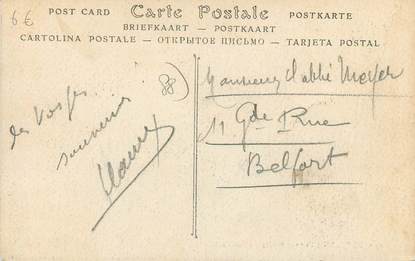 6€
POST CARD Carte Postale POSTKARTE
BRIEFKAART - POSTKAART
CARTOLINA POSTALE - ОТКРЫТОЕ ПИСЬМО - TARJETA POSTAL
des Vosges
souvenirs
Monsieur l'abbé Meyer
11 Gde Rue
Belfort